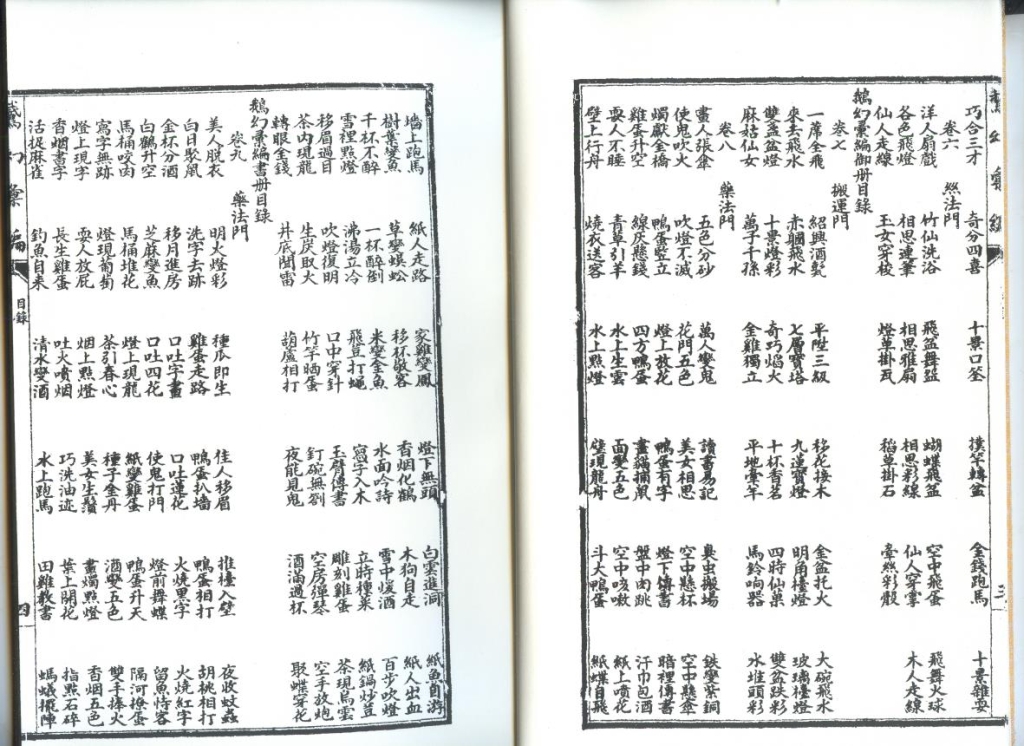 巧合三才 奇分四喜 十景口筌 金錢跑馬 十景雜耍
卷六 絲法門
洋人扇戲 竹仙洗浴 飛盆舞盆 蝴蝶飛盆 空中飛蛋 飛舞火球
各色飛燈 相思連筆 相思雅扇 相思彩線 仙人穿掌 木人走線
仙人走線 玉女穿梭 燈草掛瓦 稻草掛石 牽絲彩骰
鵝幻彙編御册目錄
卷七 搬運門
一席全飛 紹興酒甏 平陞三級 移花接木 金盆托火 大碗飛水
來去飛水 赤膊飛水 七層寶塔 九連寶燈 明角檯燈 玻璃檯燈
雙盆盆燈 十景燈彩 奇巧焰火 十杯香茗 四時仙菓 雙盆跌彩
麻姑仙女 萬子千孫 金雞獨立 平地牽羊 馬鈴响器 水堆頭彩
卷八 藥法門
畫人張傘 五色分砂 萬人變鬼 讀書易記 臭虫搬場 鉄變紫銅
使鬼吹火 吹燈不滅 花門五色 美女相思 空中懸杯 空中懸傘
燭獻金橋 鴨蛋豎立 燈上放花 鴨蛋有字 燈下鐫書 暗裡傳書
雞蛋升空 線灰懸錢 四方鴨蛋 畫貓捕鼠 盤中肉跳 汗巾包酒
耍人不睡 青草引羊 水上生雲 面變五色 空中咳嗽 紙上噴花
壁上行舟 燒衣送客 水上點燈 壁現龍舟 斗大鴨蛋 紙蝶自飛
墻上跑馬 紙人走路 家雞變鳳 燈下無頭 白雲進洞 紙魚自游
樹葉變魚 草變蜈蚣 移杯敬客 香烟化鶴 木狗自走 紙人出血
千杯不醉 一杯醉倒 米變金魚 水面吟詩 雪中暖酒 百步吹燈
雪裡點燈 沸湯立冷 飛豆打蠅 寫字入木 立時種菜 紙鍋炒荳
移眉過目 吹燈復明 口中穿針 玉臂傳書 雕刻雞蛋 茶現烏雲
茶内現龍 生炭取火 竹竿晒蛋 釘碗無劄 空房彈琴 空手放炮
轉眼金錢 井底聞雷 葫蘆相打 夜能見鬼 酒滿過杯 聚蝶穿花
鵝幻彙編書册目錄
卷九 藥法門
美人脫衣 明火燈彩 種瓜即生 佳人移眉 推檯入壁 夜收蚊蟲
白日聚氣 洗字去跡 雞蛋走路 鴨蛋扒墻 鴨蛋相打 胡桃相打
金杯分酒 移月進房 口吐字畫 口吐蓮花 火燒黑字 火燒紅字
白鶴升空 芝麻變魚 口吐四花 使鬼打門 燈前舞蝶 留魚待客
馬桶咬肉 馬桶堆花 燈上現龍 紙變雞蛋 鴨蛋升天 隔河換蛋
寫字無跡 燈現葡萄 茶引春心 種子金丹 酒變五色 雙手捧火
燈上現字 耍人放屁 烟上點燈 美女生鬚 畫燭點燈 香烟五色
香烟書字 長生雞蛋 吐火噴烟 巧洗油迹 葉上開花 指點石碎
沽捉麻雀 釣魚自來 清水變酒 水上跑馬 田雞教書 螞蟻擺陣
鵝幻彙編 目錄 四